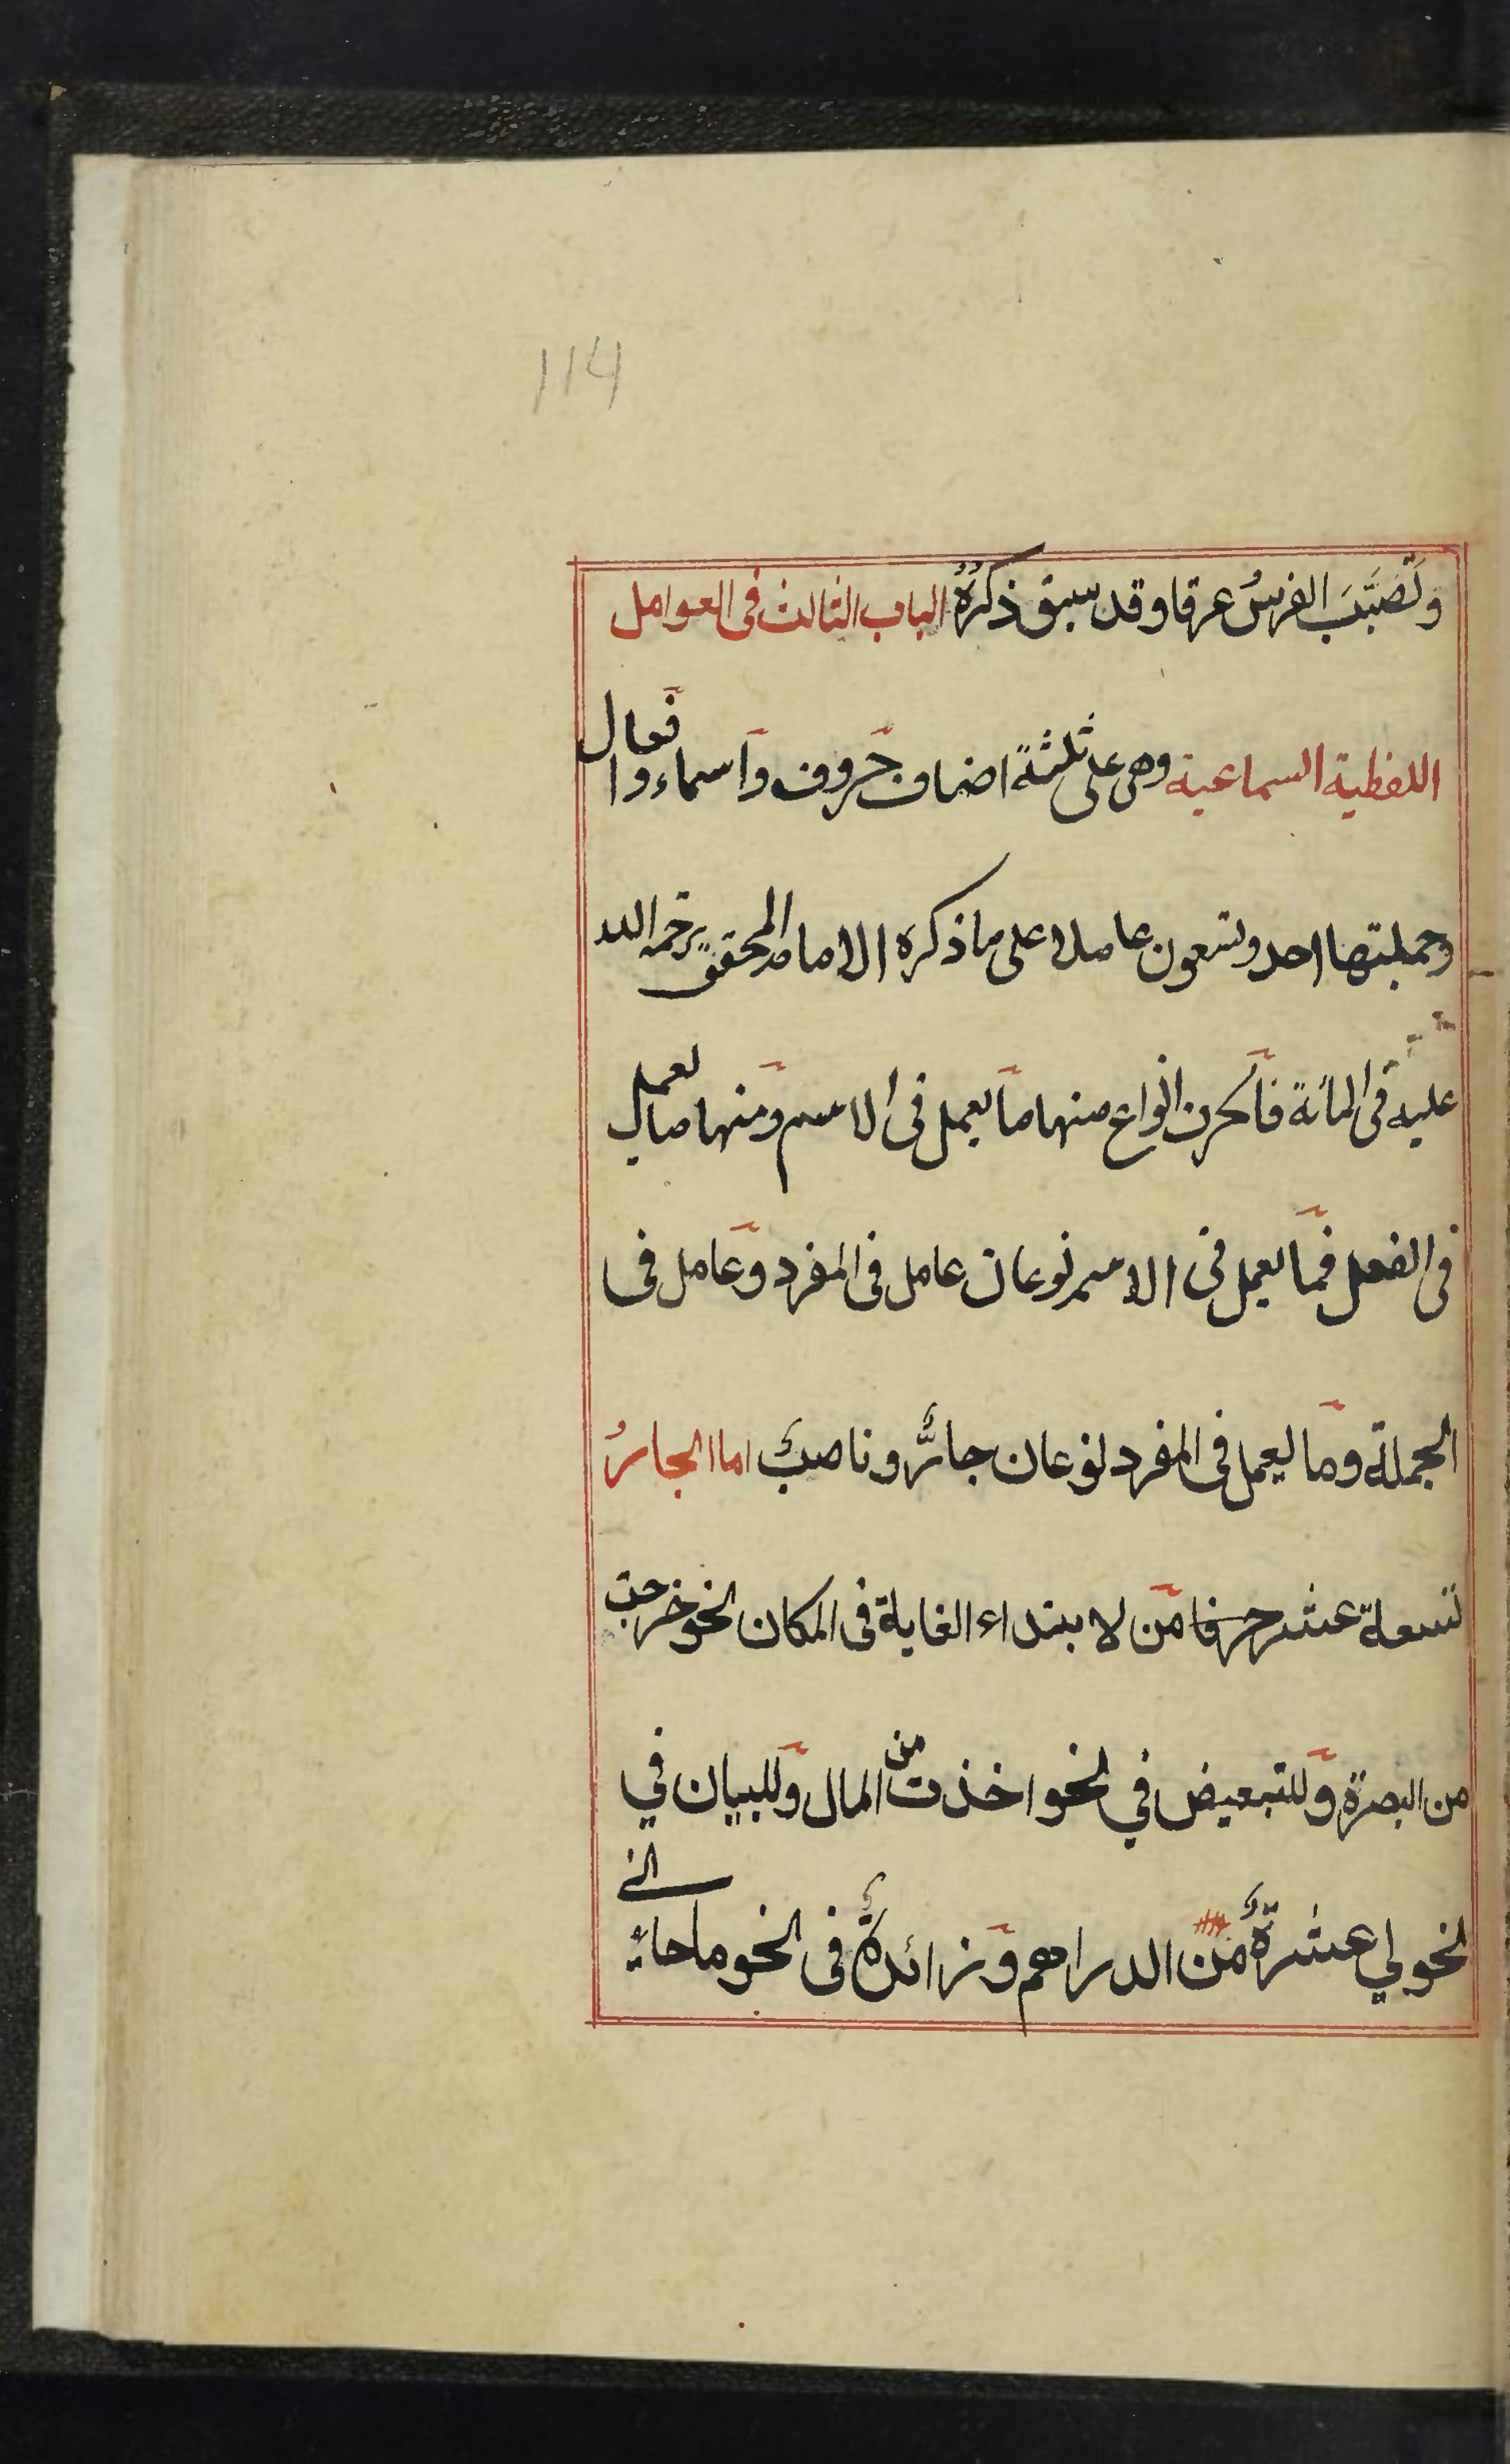 114
وتَصَبَّبَ الفرسُ عرقا وقد سبق ذكرُهُ الباب الثالث فى العوامل
اللفظية السماعية وهى على ثلثة اصناف حروف واسماء وافعال
وجملتها احد وتسعون عاملا على ما ذكره الامام المحقق رحمة الله
عليه فى المائة فالحرف انواع منها ما يعمل فى الاسم ومنها ما يعمل
فى الفعل فما يعمل فى الاسم نوعان عامل فى المفرد وعامل فى
الجملة وما يعمل فى المفرد نوعان جارٌّ وناصبٌ اما الجارُ
تسعة عشر حرفا من لابتداء الغاية فى المكان نحو خرجت
من البصرة وللتبعيض في نحو اخذت من المال وللبيان في
نحو لي عشرةٌ من الدراهم وزائدةٌ فى نحو ما جاءنى